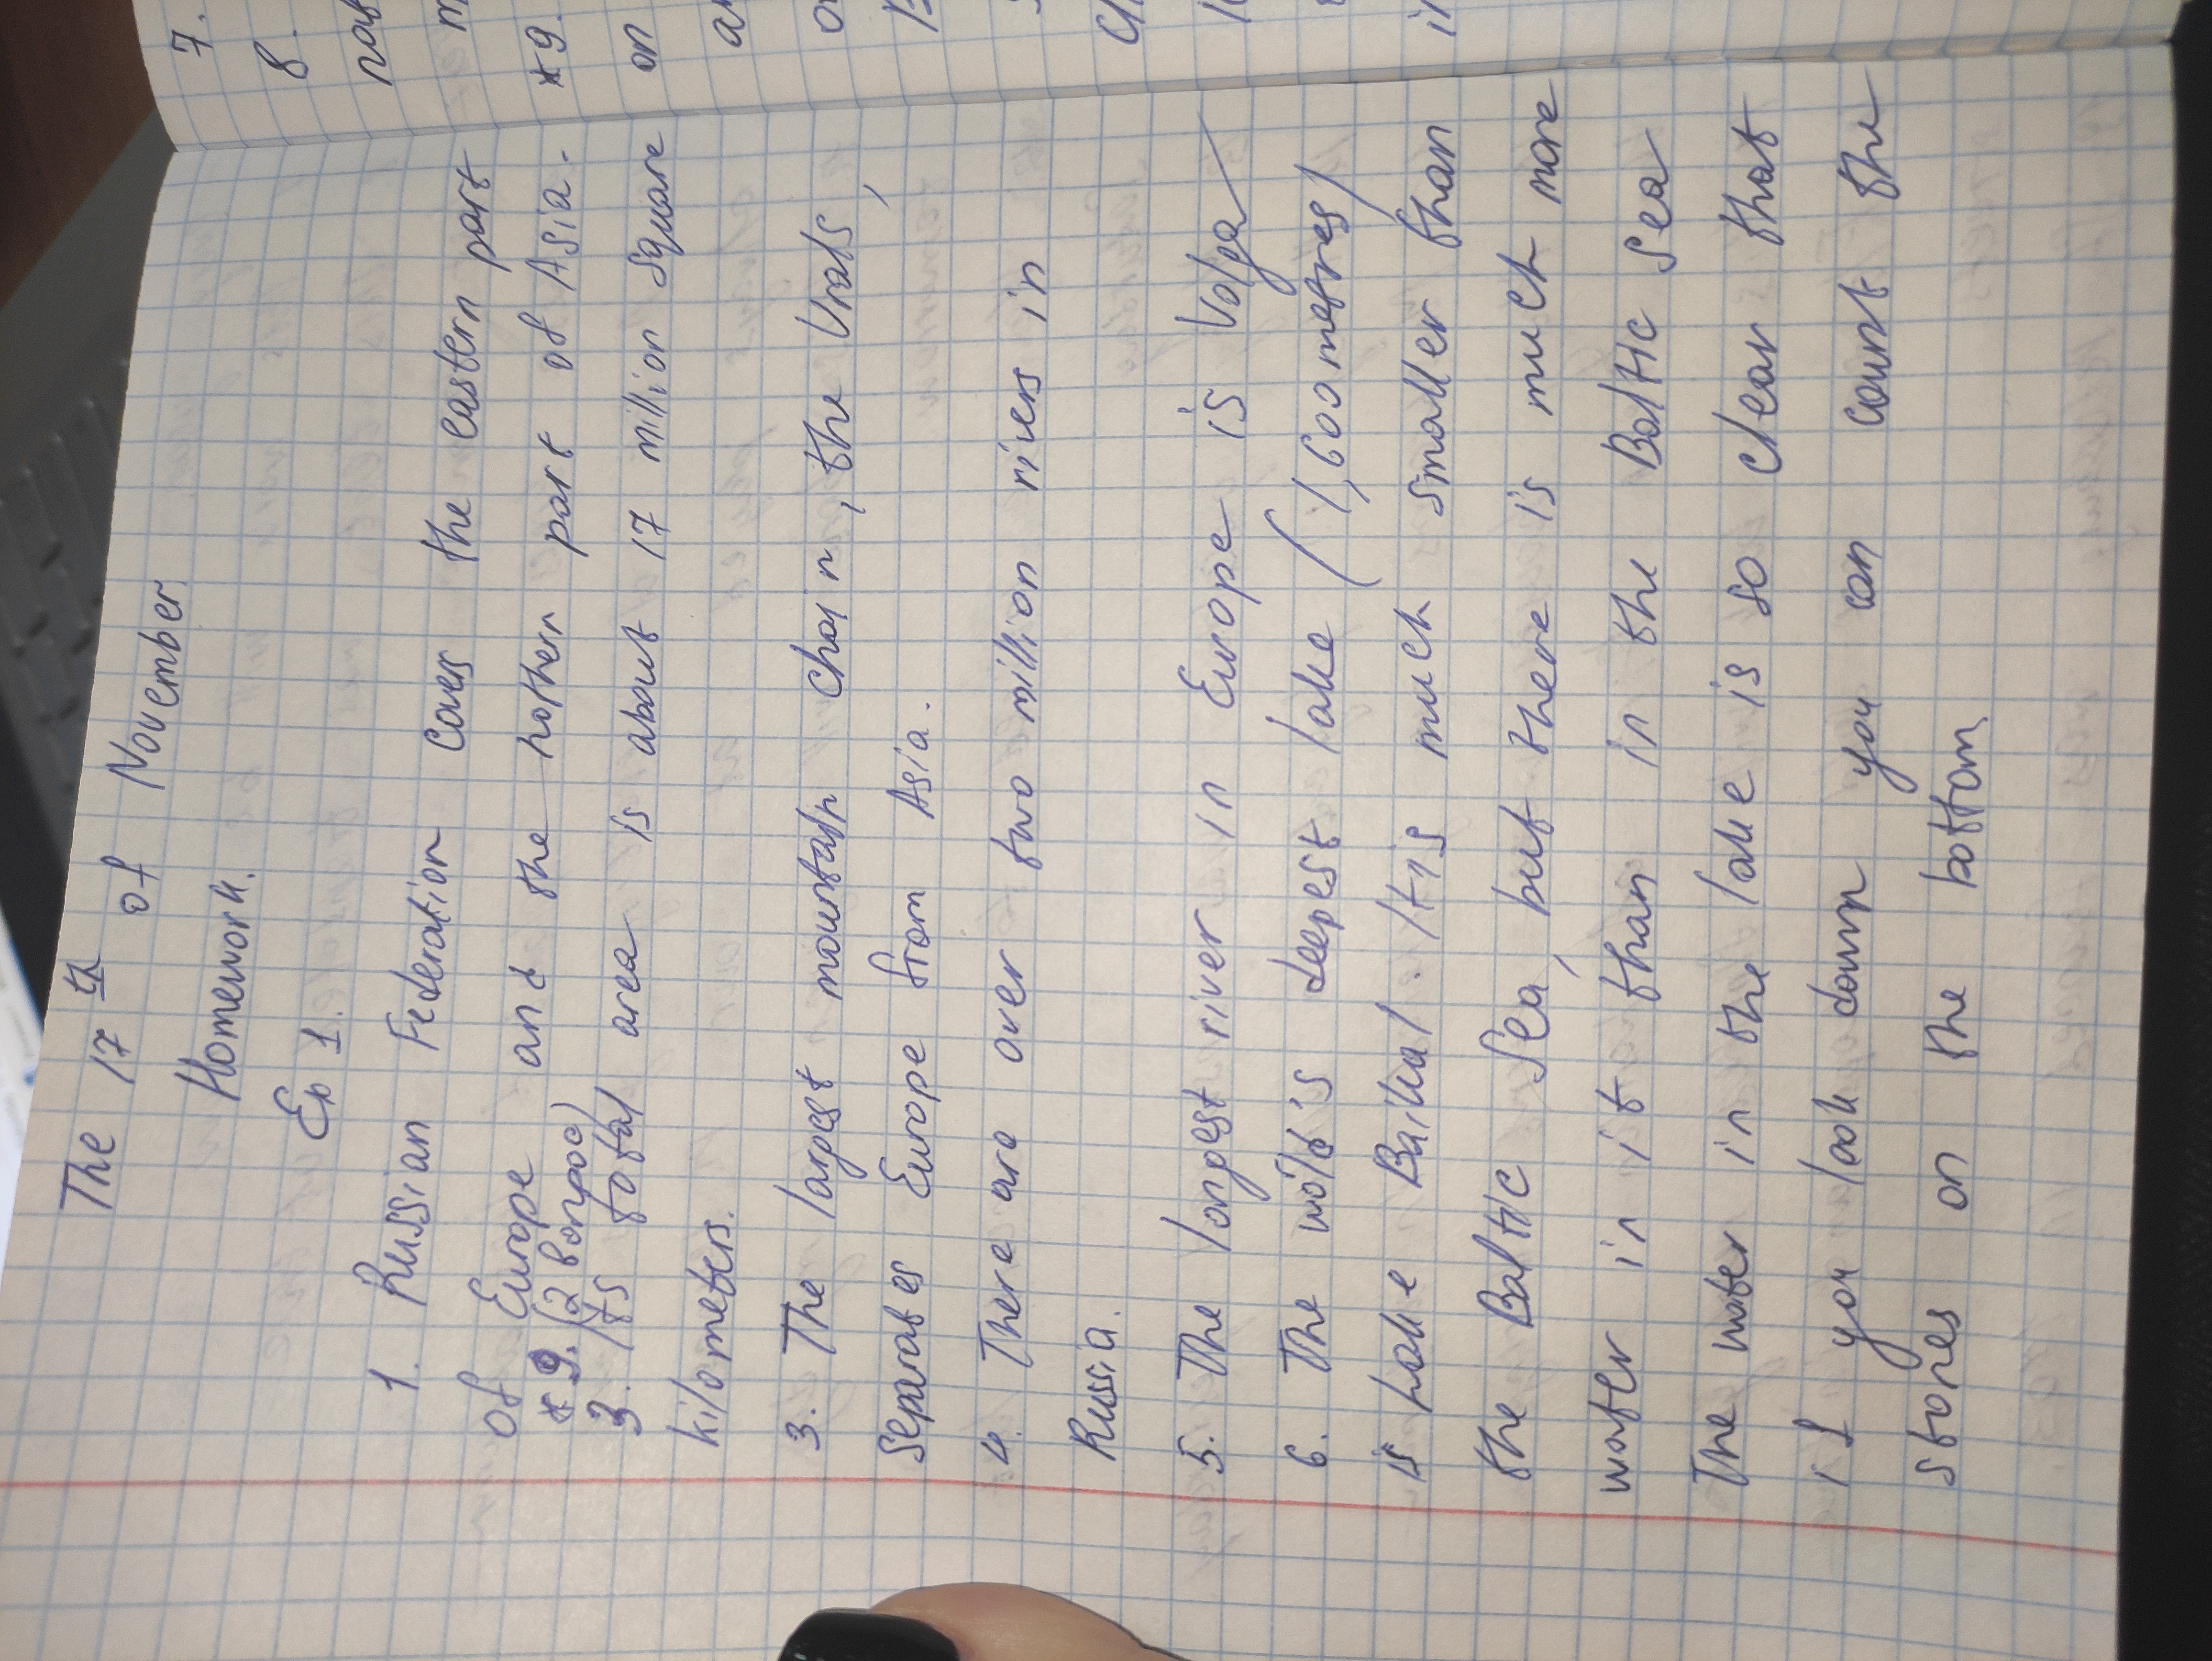 The 17th of November.
Homework.
Ex 1.
1. Russian Federation covers the eastern part
of Europe and the nothern part of Asia.
* 9. (2 вопрос)
3. Its total area is about 17 million square
kilometers.
3. The largest mountain chain, the Urals,
separates Europe from Asia.
4. There are over two million rivers in
Russia.
5. The longest river in Europe is Volga
6. The wold's deepest lake (1,600 metres)
is Lake Baikal. It is much smaller than
the Baltic Sea, but there is much more
water in it than in the Baltic Sea
The water in the lake is so clear that
if you look down you can count the
stones on the bottom.
7.
8.
*9.
on